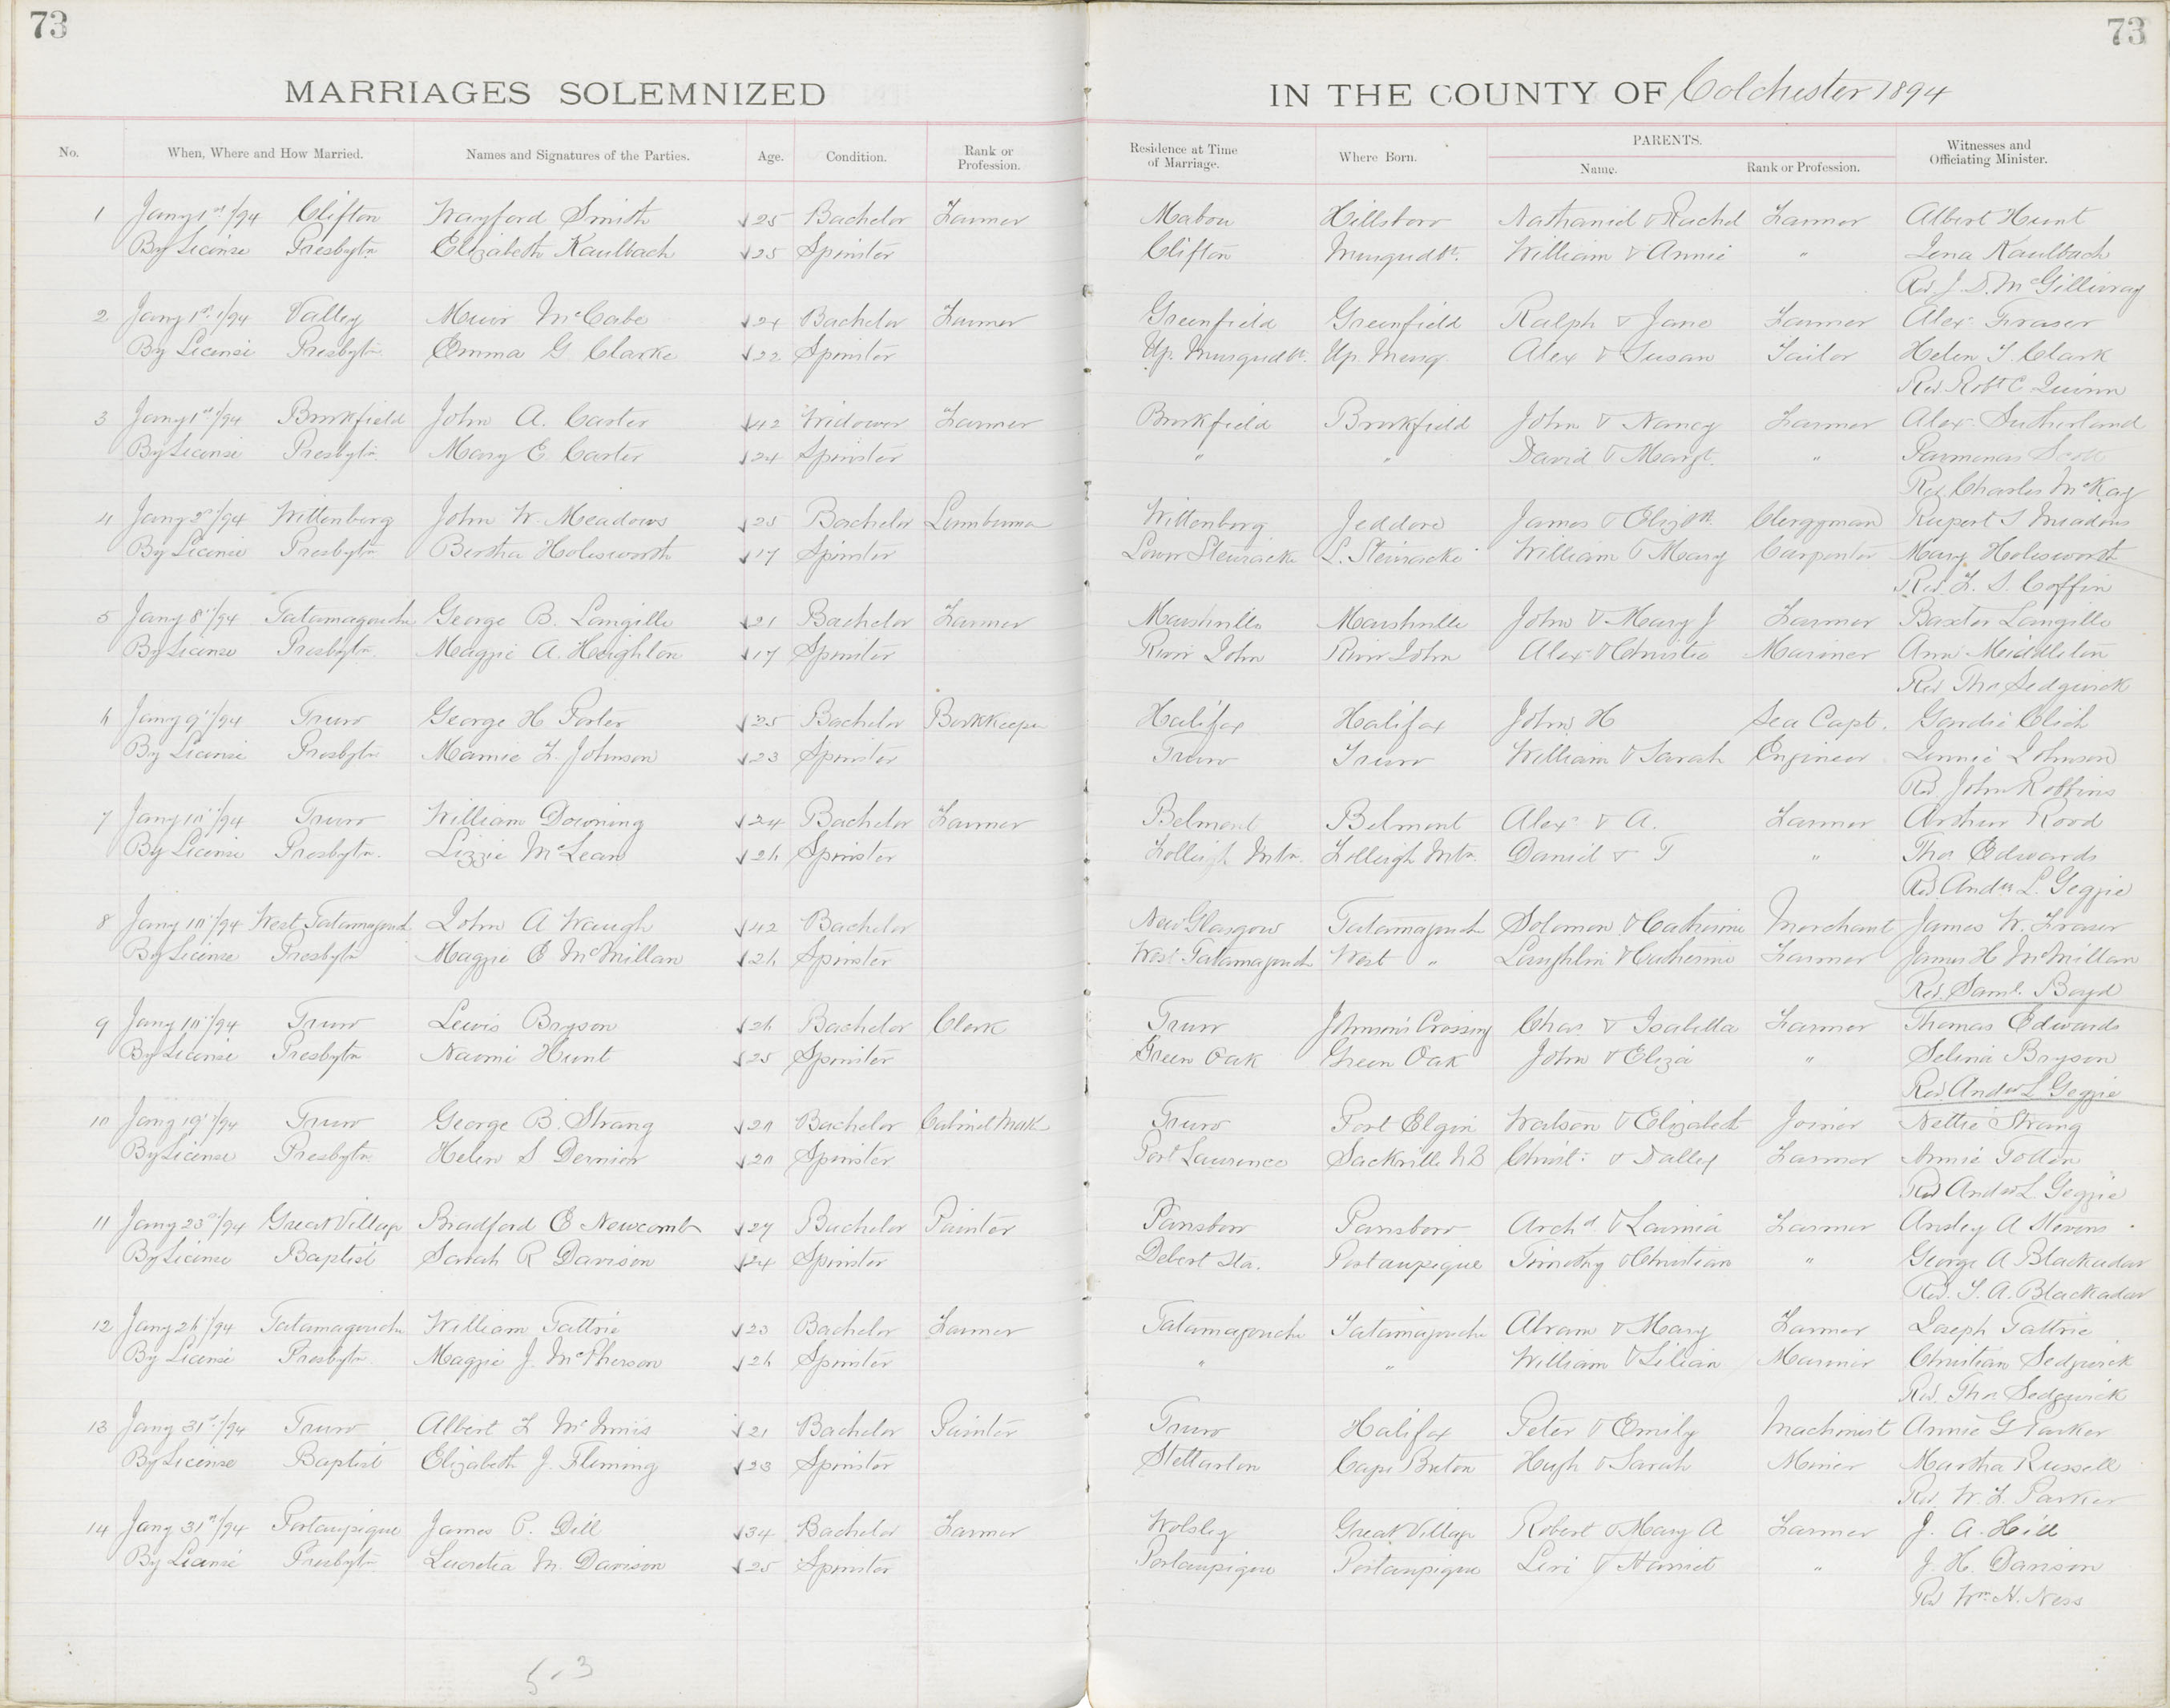 73
73
MARRIAGES SOLEMNIZED IN THE COUNTY OF Colchester 1894
No. When, Where and How Married. Names and Signatures of the Parties. Age. Condition. Rank or Profession. Residence at Time of Marriage. Where Born. PARENTS. Name. Rank or Profession. Witnesses and Officiating Minister.
1 Jany 1st/94 Clifton Wayford Smith 25 Bachelor Farmer Mabou Hillsboro Nathaniel & Rachel Farmer Albert Hunt
By License Presbytn Elizabeth Kaulbach 25 Spinster Clifton Musqudbt. William & Annie " Lena Kaulbach
Rev J. D. McGillivray
2 Jany 1st/94 Valley Muir McCabe 24 Bachelor Farmer Greenfield Greenfield Ralph & Jane Farmer Alex Fraser
By License Presbytn Emma G Clarke 22 Spinster Up. Musqudbt. Up. Musq. Alex & Susan Tailor Helen F. Clark
Rev Robt C Quinn
3 Jany 1st/94 Brookfield John A. Carter 42 Widower Farmer Brookfield Brookfield John & Nancy Farmer Alex Sutherland
By License Presbytn Mary E. Carter 24 Spinster " " David & Margt. " Parmenas Scott
Rev Charles McKay
4 Jany /94 Wittenberg John W. Meadows 25 Bachelor Lumberman Wittenberg Jeddore James & Elizbth Clergyman Rupert S Meadows
By License Presbytn Bertha Holesworth 17 Spinster Lower Stewiacke L. Stewiacke William & Mary Carpenter Mary Holesworth
Rev F. S. Coffin
5 Jany 8"/94 Tatamagouche George B. Langille 21 Bachelor Farmer Marshville Marshville John & Mary J Farmer Baxter Langille
By License Presbytn. Maggie A. Heighton 17 Spinster River John River John Alex & Christie Mariner Ann Middleton
Rev Thos Sedgwick
6 Jany 9"/94 Truro George H Porter 25 Bachelor Bookkeeper Halifax Halifax John H Sea Capt. Gordie
By License Presbytn Mamie F. Johnson 23 Spinster Truro Truro William & Sarah Engineer Johnson
Rev John Robbins
7 Jany 10"/94 Truro William Downing 24 Bachelor Farmer Belmont Belmont Alex & A. Farmer Arthur Rood
By License Presbytn. Lizzie McLean 26 Spinster Folleigh Mtn. Folleigh Mtn. Daniel & T " Thos Edwards
Rev Andw L. Geggie
8 Jany 10"/94 West Tatamagouch John A Waugh 42 Bachelor New Glasgow Tatamagouche Solomon & Catherine Merchant James W. Fraser
By License Presbytn Maggie E McMillan 26 Spinster West Tatamagouch West " Laughlin & Catherine Farmer James H McMillan
Rev. Saml. Boyd
9 Jany 10"/94 Truro Lewis Bryson 26 Bachelor Clerk Truro Johnson's Crossing Chas & Isabella Farmer Thomas Edwards
By License Presbytn Naomi Hunt 25 Spinster Green Oak Green Oak John & Eliza " Selina Bryson
Rev. Andw L Geggie
10 Jany 19"/94 Truro George B. Strang 20 Bachelor Cabinet Mak Truro Port Elgin Watson & Elizabeth Joiner Nettie Strang
By License Presbytn Helen S Dernier 20 Spinster Port Lawrence Sackville NB Christ: & Farmer Annie Totten
Rev Andw L Geggie
11 Jany 23rd/94 Great Village Bradford E Newcomb 27 Bachelor Painter Parrsboro Parrsboro Archd & Lavinia Farmer Ansley A Stevens
By License Baptist Sarah R Davison 24 Spinster Debert Sta. Portaupique Timothy & Christian " George A Blackadar
Rev. T. A. Blackadar
12 Jany 26"/94 Tatamagouche William Tattrie 23 Bachelor Farmer Tatamagouche Tatamagouche Abram & Mary Farmer Joseph Tattrie
By License Presbytn Maggie J. McPherson 26 Spinster " " William & Lilian Mariner Christian Sedgwick
Rev. Thos Sedgwick
13 Jany 31st/94 Truro Albert F McInnis 21 Bachelor Painter Truro Halifax Peter & Emily Machinist Annie G Parker
By License Baptist Elizabeth J. Fleming 23 Spinster Stellarton Cape Breton Hugh & Sarah Miner Martha Russell
Rev. W. F. Parker
14 Jany 31st/94 Portaupique James P. Dill 34 Bachelor Farmer Wolsley Great Village Robert & Mary A Farmer J. A. Hill
By License Presbytn Lucretia M. Davison 25 Spinster Portaupique Portaupique Levi & Harriet " J. H. Davison
Rev Wm. H. Ness